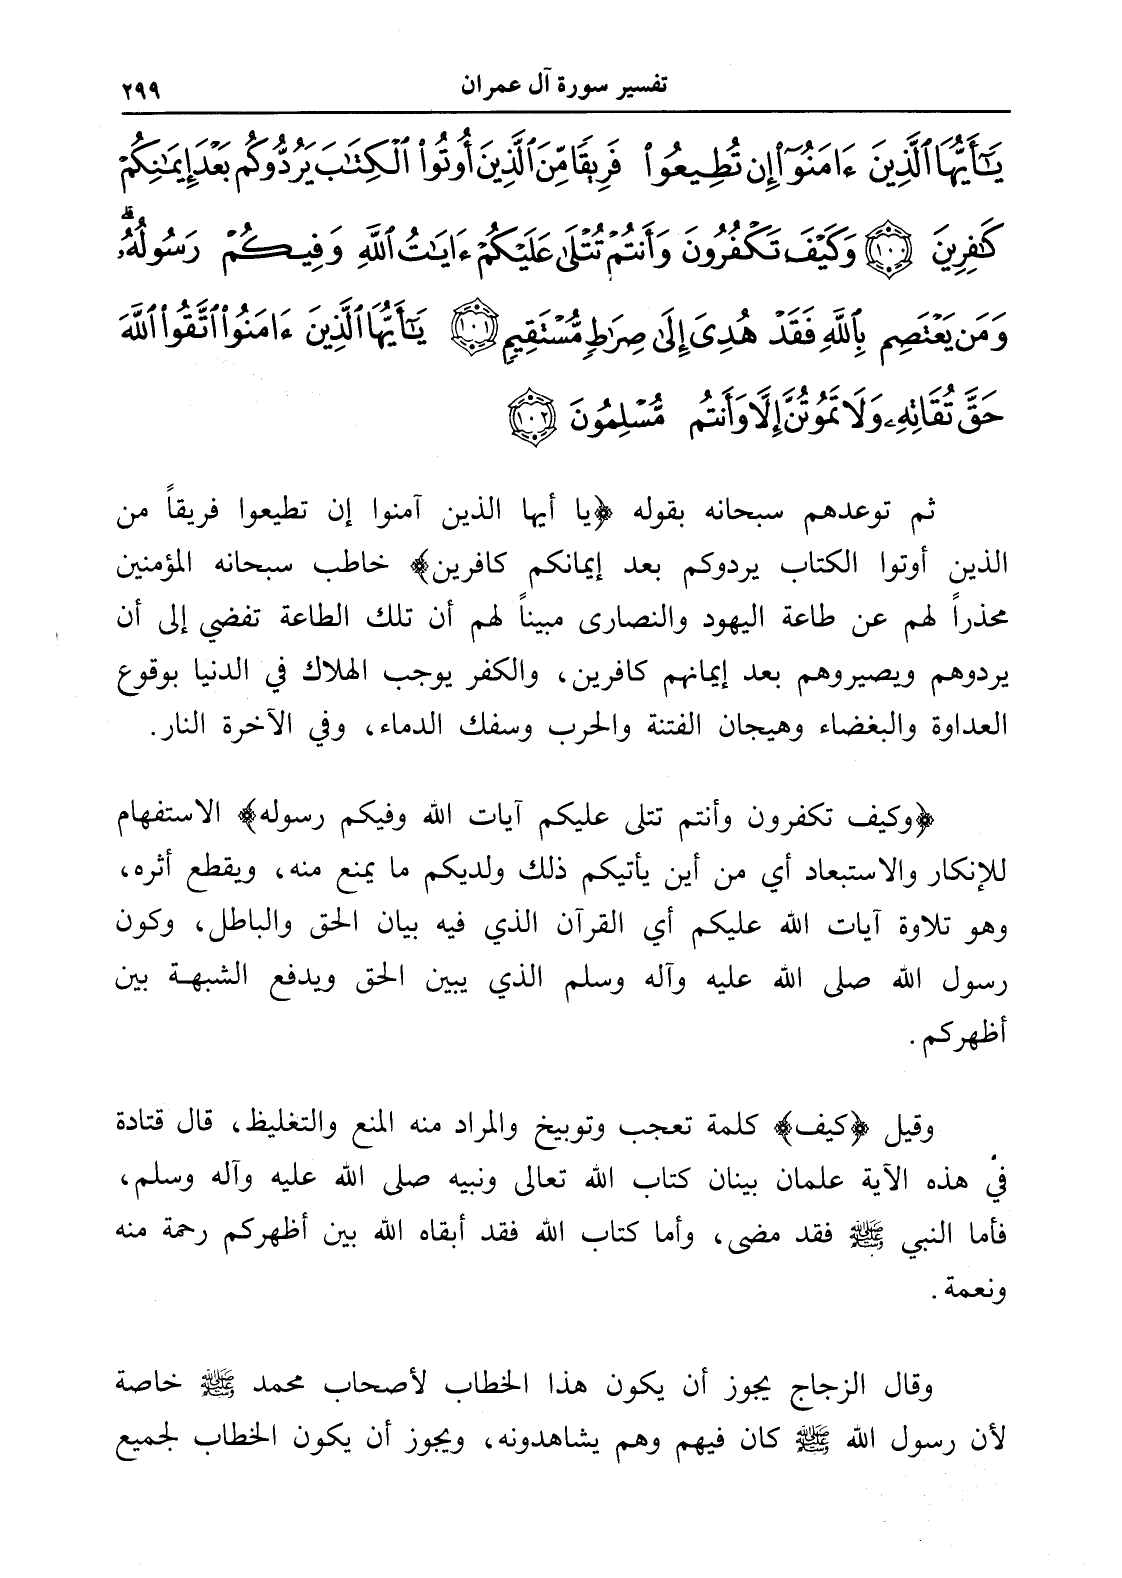 تفسير سورة آل عمران ٢٩٩
يَٰٓأَيُّهَا ٱلَّذِينَ ءَامَنُوٓا۟ إِن تُطِيعُوا۟ فَرِيقًا مِّنَ ٱلَّذِينَ أُوتُوا۟ ٱلْكِتَٰبَ يَرُدُّوكُم بَعْدَ إِيمَٰنِكُمْ
كَٰفِرِينَ ١٠٠ وَكَيْفَ تَكْفُرُونَ وَأَنتُمْ تُتْلَىٰ عَلَيْكُمْ ءَايَٰتُ ٱللَّهِ وَفِيكُمْ رَسُولُهُۥ ۗ
وَمَن يَعْتَصِم بِٱللَّهِ فَقَدْ هُدِىَ إِلَىٰ صِرَٰطٍ مُّسْتَقِيمٍ ١٠١ يَٰٓأَيُّهَا ٱلَّذِينَ ءَامَنُوا۟ ٱتَّقُوا۟ ٱللَّهَ
حَقَّ تُقَاتِهِۦ وَلَا تَمُوتُنَّ إِلَّا وَأَنتُم مُّسْلِمُونَ ١٠٢
ثم توعدهم سبحانه بقوله ﴿يا أيها الذين آمنوا إن تطيعوا فريقاً من
الذين أوتوا الكتاب يردوكم بعد إيمانكم كافرين﴾ خاطب سبحانه المؤمنين
محذراً لهم عن طاعة اليهود والنصارى مبيناً لهم أن تلك الطاعة تفضي إلى أن
يردوهم ويصيروهم بعد إيمانهم كافرين، والكفر يوجب الهلاك في الدنيا بوقوع
العداوة والبغضاء وهيجان الفتنة والحرب وسفك الدماء، وفي الآخرة النار.
﴿وكيف تكفرون وأنتم تتلى عليكم آيات الله وفيكم رسوله﴾ الاستفهام
للإنكار والاستبعاد أي من أين يأتيكم ذلك ولديكم ما يمنع منه، ويقطع أثره،
وهو تلاوة آيات الله عليكم أي القرآن الذي فيه بيان الحق والباطل، وكون
رسول الله صلى الله عليه وآله وسلم الذي يبين الحق ويدفع الشبهة بين
أظهركم.
وقيل ﴿كيف﴾ كلمة تعجب وتوبيخ والمراد منه المنع والتغليظ، قال قتادة
في هذه الآية علمان بينان كتاب الله تعالى ونبيه صلى الله عليه وآله وسلم،
فأما النبي ﷺ فقد مضى، وأما كتاب الله فقد أبقاه الله بين أظهركم رحمة منه
ونعمة.
وقال الزجاج يجوز أن يكون هذا الخطاب لأصحاب محمد ﷺ خاصة
لأن رسول الله ﷺ كان فيهم وهم يشاهدونه، ويجوز أن يكون الخطاب لجميع